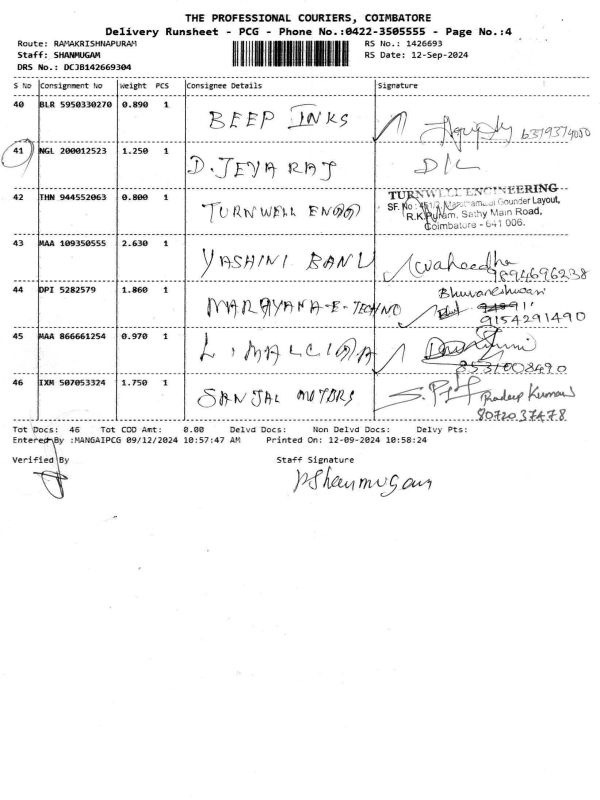 THE PROFESSIONAL COURIERS, COIMBATORE
Delivery Runsheet - PCG - Phone No.:0422-3505555 - Page No.:4
Route: RAMAKRISHNAPURAM RS No.: 1426693
Staff: SHANMUGAM RS Date: 12-Sep-2024
DRS No.: DCJB142669304
S No Consignment No Weight PCS Consignee Details Signature
40 BLR 5950330270 0.890 1 BEEP INKS 6379374080
41 NGL 200012523 1.250 1 D. JEYA RAJ D/L
42 THN 944552063 0.800 1 TURNWELL ENGG
TURNWELL ENGINEERING
SF.No : 451/2, Gounder Layout,
R.K.Puram, Sathy Main Road,
Coimbature - 641 006.
43 MAA 109350555 2.630 1 YASHINI BANU Waheedha
9894696238
44 DPI 5282579 1.860 1 NARAYANA-E-TECHNO Bhuvaneshwari
9154291490
45 MAA 866661254 0.970 1
8531008490
46 IXM 507053324 1.750 1 SANJAL MOTORS Pradeep Kumar
8072037478
Tot Docs: 46 Tot COD Amt: 0.00 Delvd Docs: Non Delvd Docs: Delvy Pts:
Entered By :MANGAIPCG 09/12/2024 10:57:47 AM Printed On: 12-09-2024 10:58:24
Verified By Staff Signature
P Shanmugam